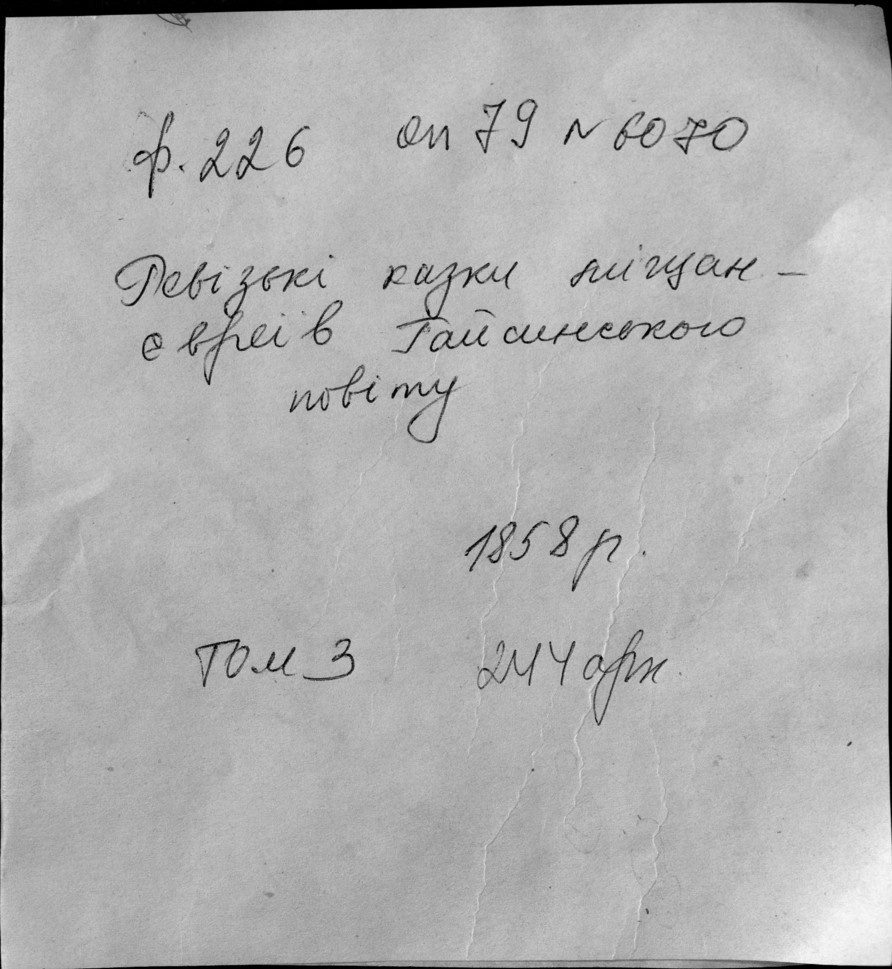 ф. 226 оп 79 № 6070
Ревізькі казки міщан –
євреїв Гайсинського
повіту
1858 р.
Том 3 244 арк.